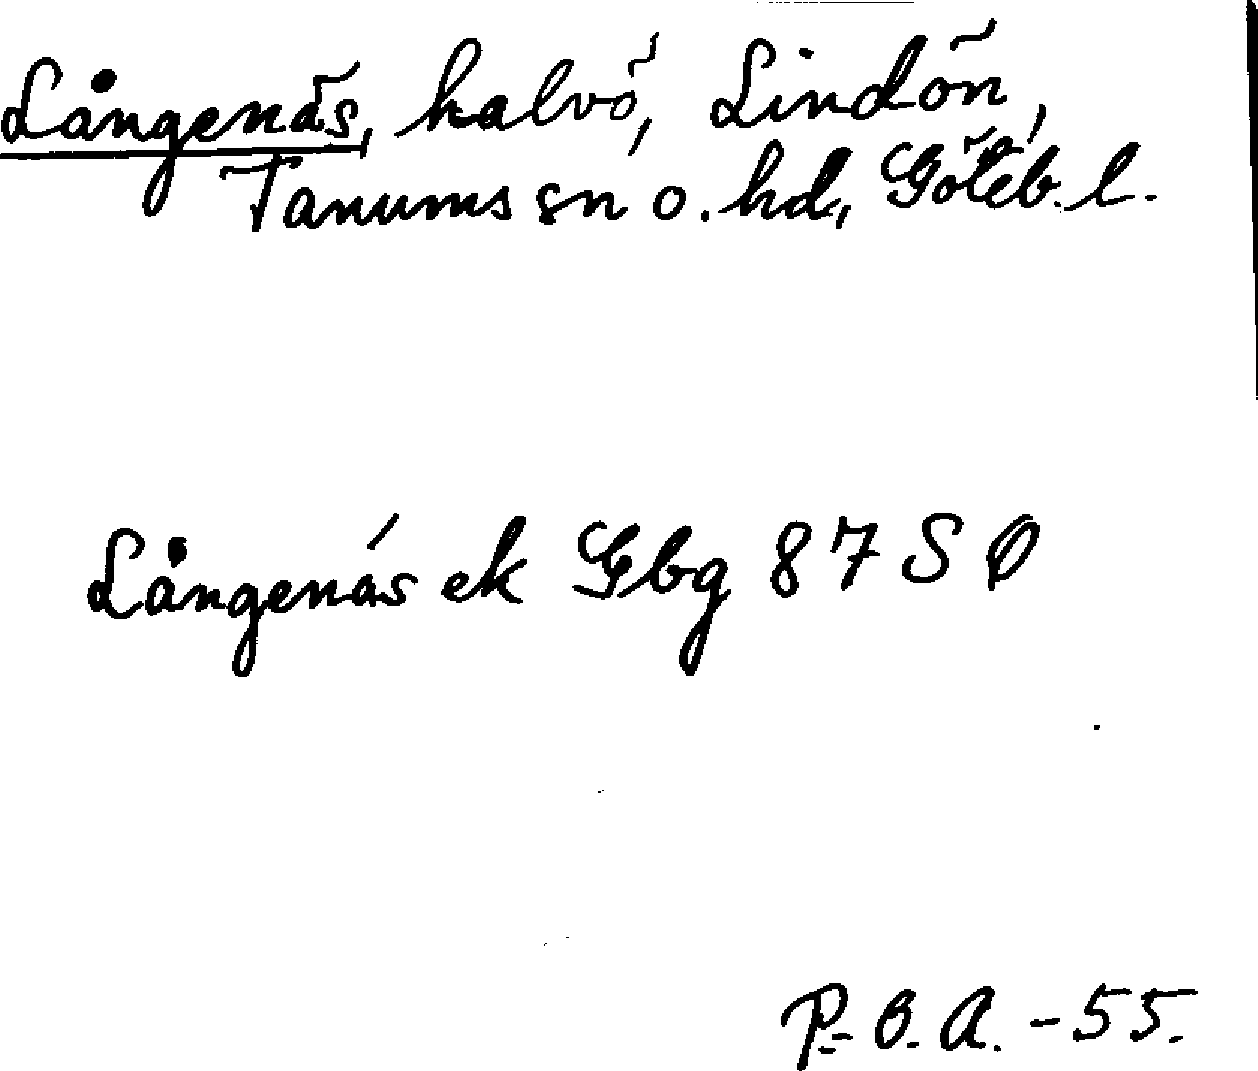 Långenäs, halvö, Lindön,
Tanums sn o. hd, Göteb. l.
Långenäs ek Gbg 87 S Ø
P.-O. A. -55.